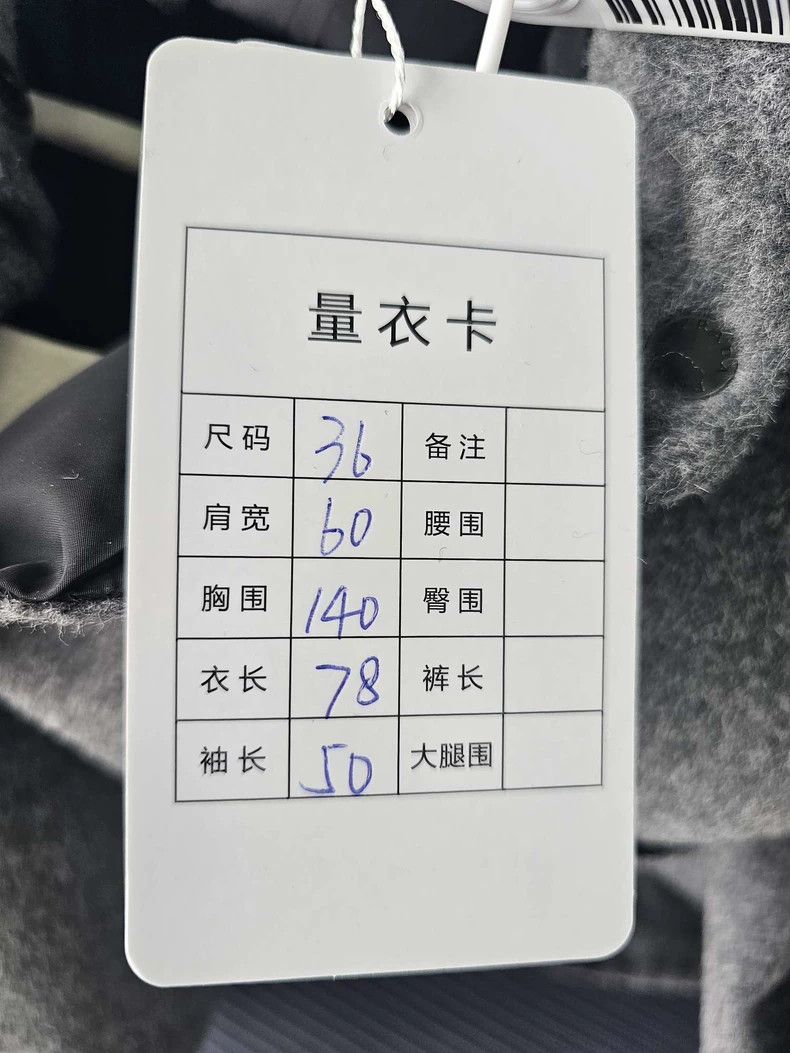 量衣卡
尺码 36 备注
肩宽 60 腰围
胸围 140 臀围
衣长 78 裤长
袖长 50 大腿围